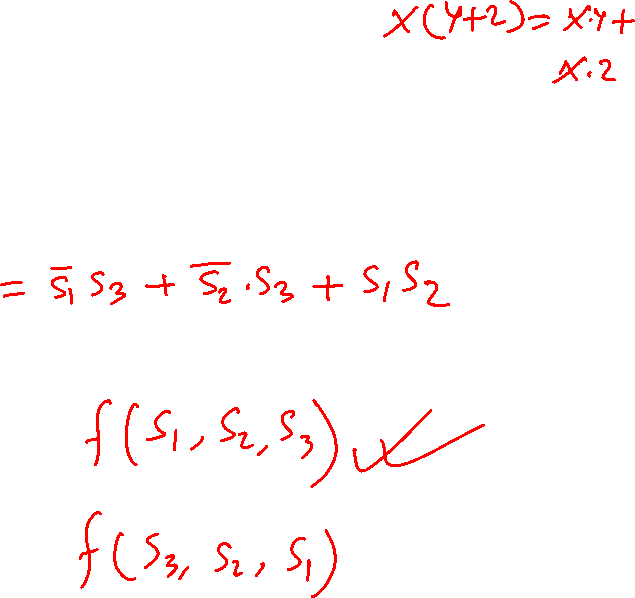 x(y+z)=x.y+
x.z
= s̅₁ s₃ + s̅₂.s₃ + s₁ s₂
f(s₁, s₂, s₃) ✓
f(s₃, s₂, s₁)